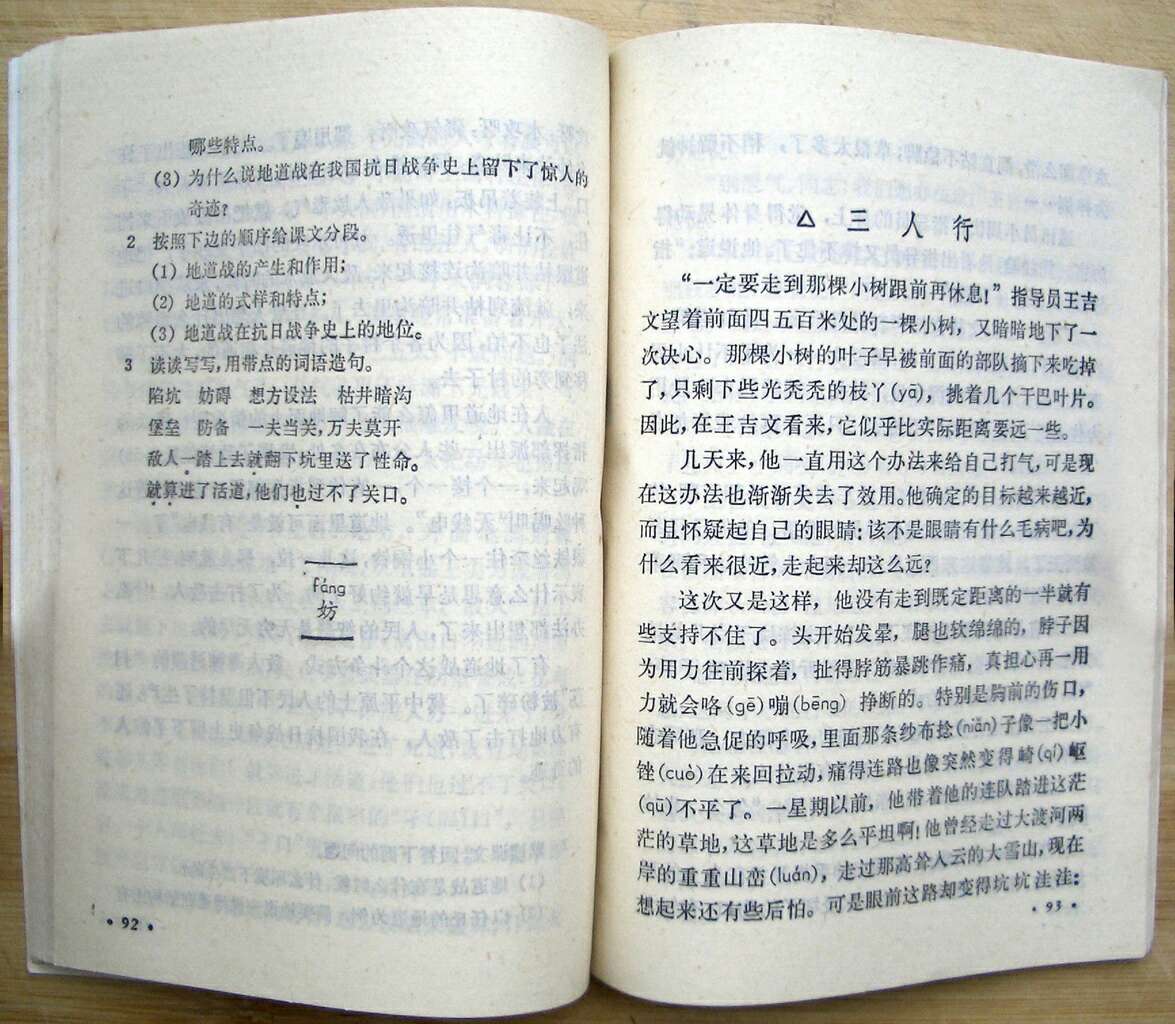 哪些特点。
（3）为什么说地道战在我国抗日战争史上留下了惊人的
奇迹？
2 按照下边的顺序给课文分段。
（1）地道战的产生和作用；
（2）地道的式样和特点；
（3）地道战在抗日战争史上的地位。
3 读读写写，用带点的词语造句。
陷坑 妨碍 想方设法 枯井暗沟
堡垒 防备 一夫当关，万夫莫开
敌人一踏上去就翻下坑里送了性命。
就算进了活道，他们也过不了关口。
fáng
妨
• 92 •
△ 三 人 行
“一定要走到那棵小树跟前再休息！”指导员王吉
文望着前面四五百米处的一棵小树，又暗暗地下了一
次决心。那棵小树的叶子早被前面的部队摘下来吃掉
了，只剩下些光秃秃的枝丫(yā)，挑着几个干巴叶片。
因此，在王吉文看来，它似乎比实际距离要远一些。
几天来，他一直用这个办法来给自己打气，可是现
在这办法也渐渐失去了效用。他确定的目标越来越近，
而且怀疑起自己的眼睛：该不是眼睛有什么毛病吧，为
什么看来很近，走起来却这么远？
这次又是这样，他没有走到既定距离的一半就有
些支持不住了。头开始发晕，腿也软绵绵的，脖子因
为用力往前探着，扯得脖筋暴跳作痛，真担心再一用
力就会咯(gē)嘣(bēng)挣断的。特别是胸前的伤口，
随着他急促的呼吸，里面那条纱布捻(niǎn)子像一把小
锉(cuò)在来回拉动，痛得连路也像突然变得崎(qí)岖
(qū)不平了。一星期以前，他带着他的连队踏进这茫
茫的草地，这草地是多么平坦啊！他曾经走过大渡河两
岸的重重山峦(luán)，走过那高耸人云的大雪山，现在
想起来还有些后怕。可是眼前这路却变得坑坑洼洼：
• 93 •